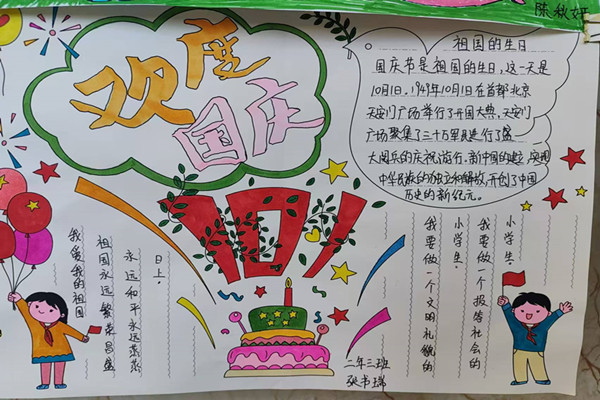 陈秋妍
欢度
国庆
祖国的生日
国庆节是祖国的生日,这一天是
10月1日,1949年10月1日在首都北京
天安门广场举行了开国大典,天安门
广场聚集了三十万军民进行了盛
大阅兵的庆祝游行,新中国的建立,实现
中华民族的独立和解放,开创了中国
历史的新纪元。
101
小学生,
我要做一个报答社会的
小学生,
我要做一个文明礼貌的
日上,
永远和平永远蒸蒸
祖国永远繁荣昌盛
我爱我的祖国
二年三班
张书瑞